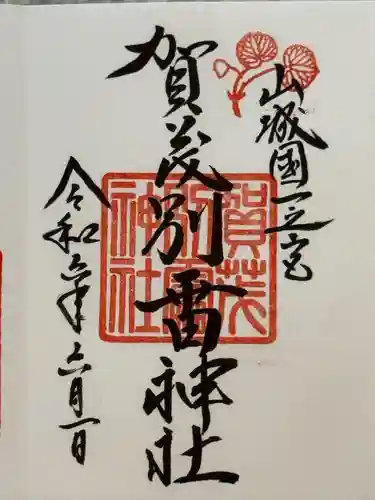 山城國一之宮
賀茂別雷神社
令和六年六月一日
賀茂
別雷
神社